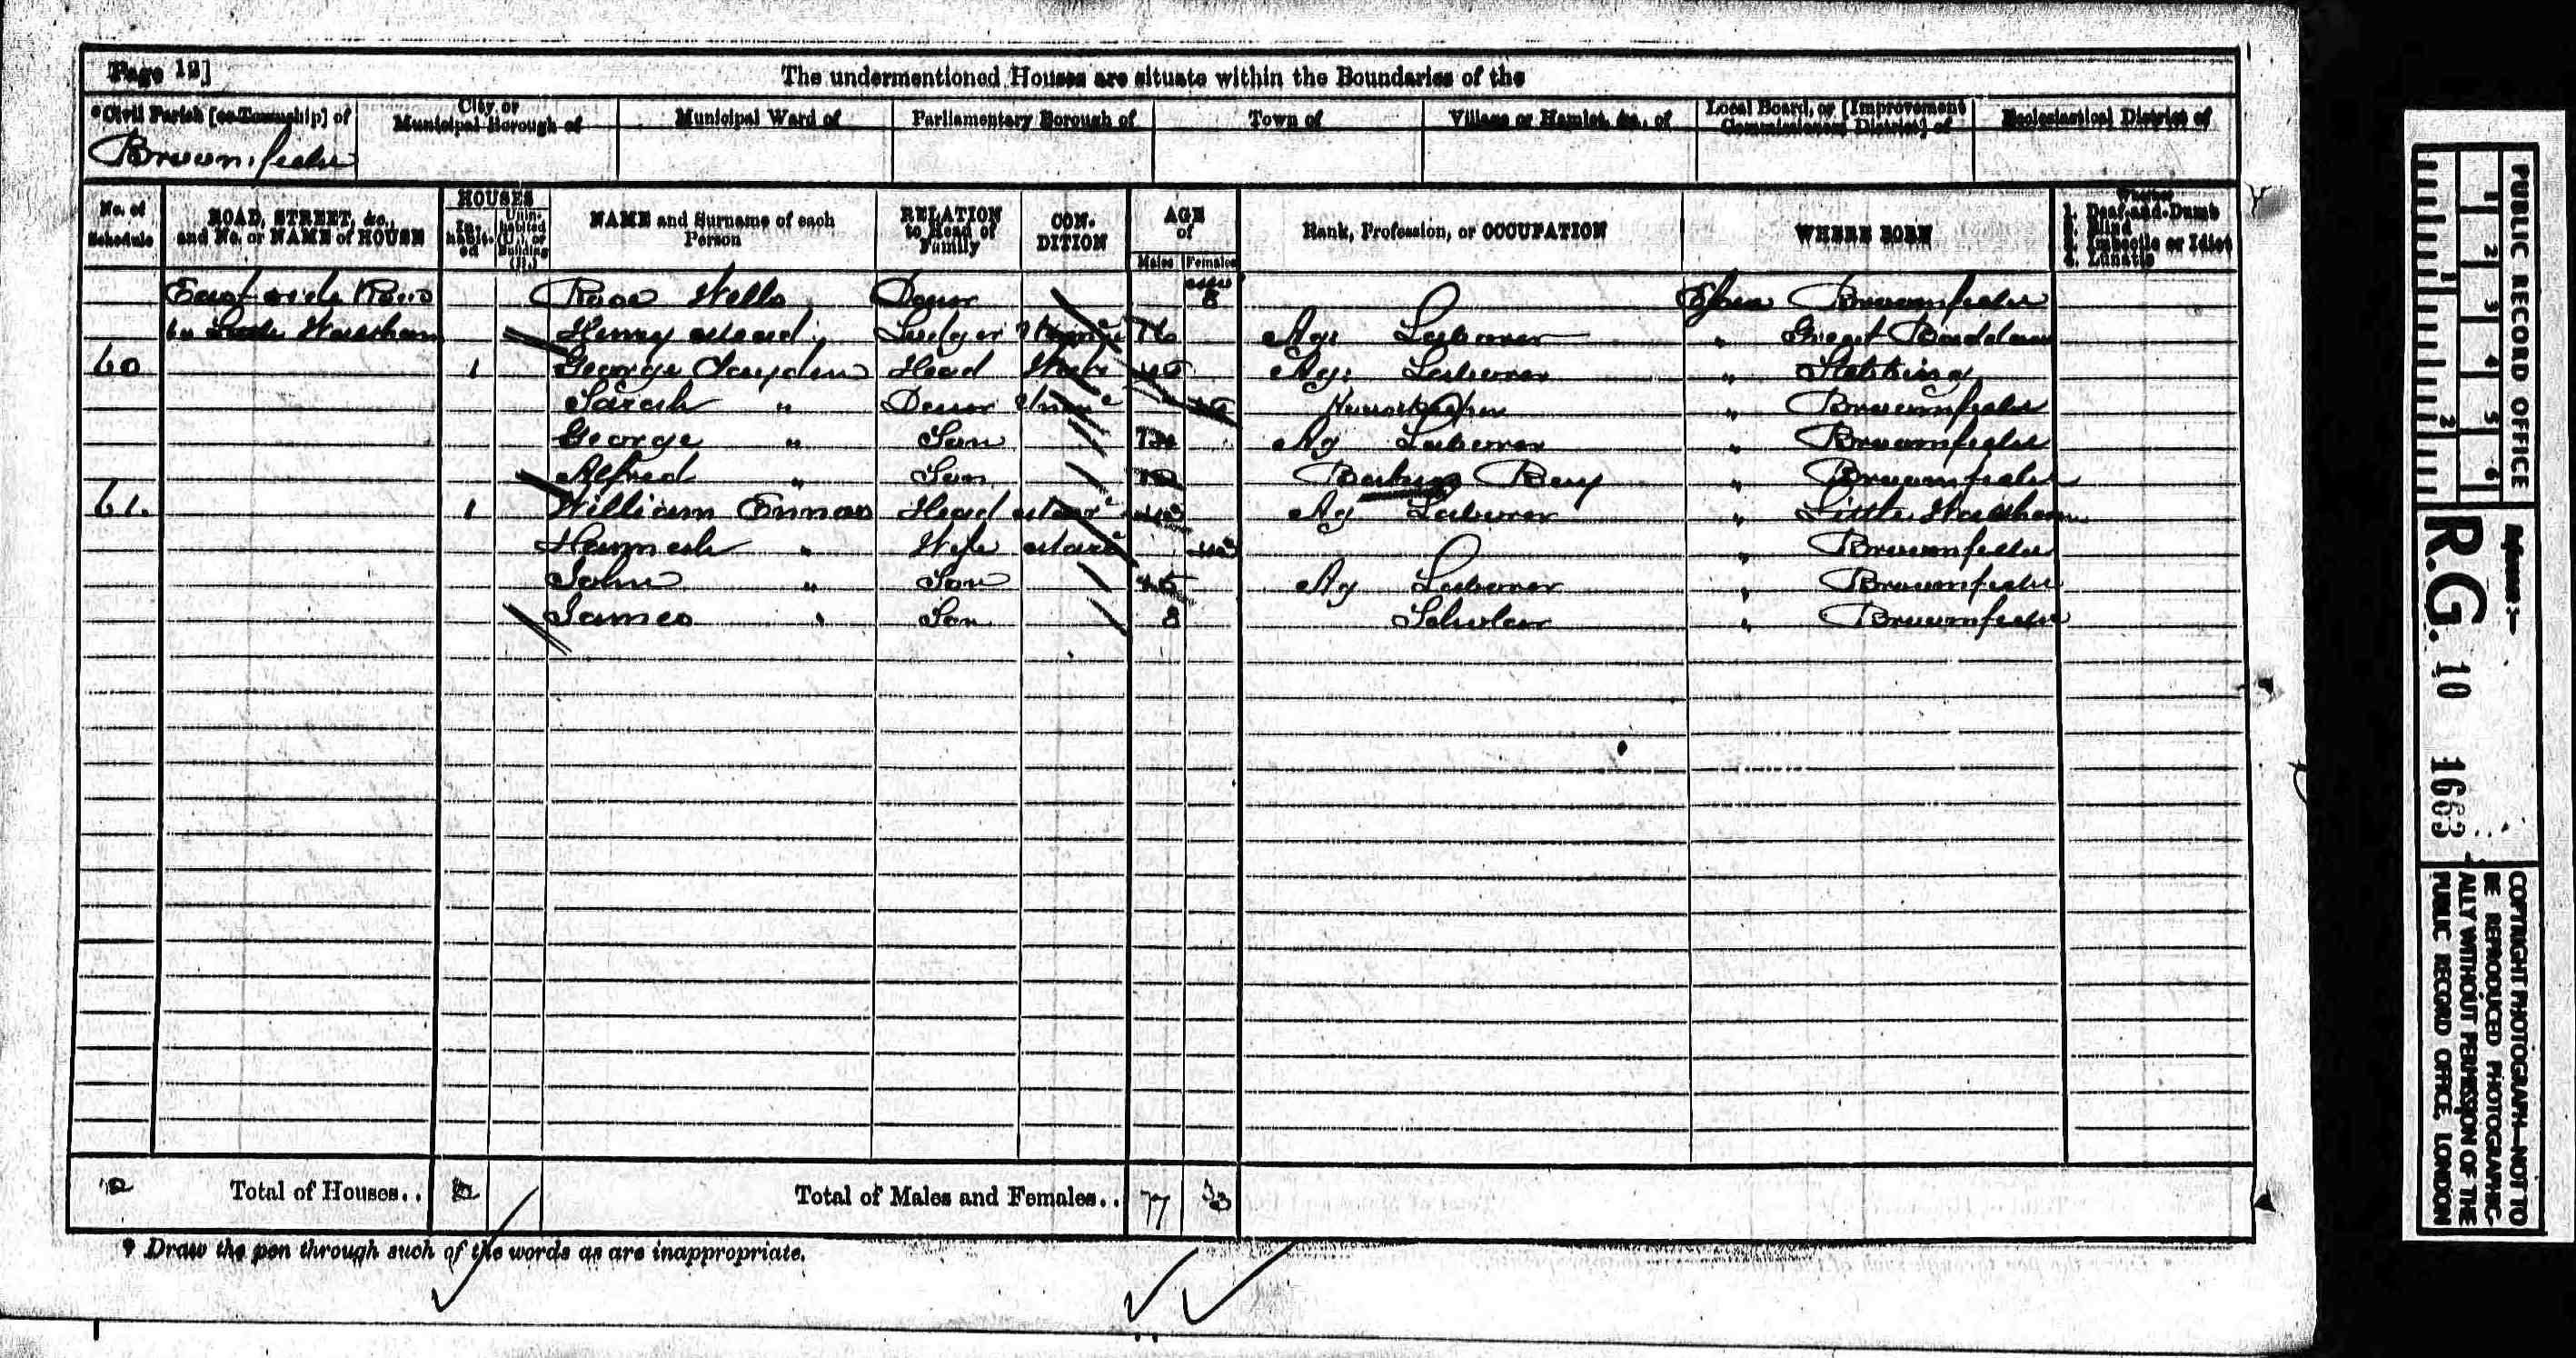 Page 12]
The undermentioned Houses are situate within the Boundaries of the
*Civil Parish [or Township] of
City, or Municipal Borough of
Municipal Ward of
Parliamentary Borough of
Town of
Village or Hamlet, &c., of
Local Board, or [Improvement Commissioners District] of
Ecclesiastical District of
Broomfield
No. of Schedule
ROAD, STREET, &c., and No. or NAME of HOUSE
HOUSES
Inhabited
Uninhabited (U.), or Building (B.)
NAME and Surname of each Person
RELATION to Head of Family
CONDITION
AGE of
Males Females
Rank, Profession, or OCCUPATION
WHERE BORN
Whether
1. Deaf-and-Dumb
2. Blind
3. Imbecile or Idiot
4. Lunatic
East side Road Rose Wells Daur 8 Essex Broomfield
to Little Waltham Henry Mead Lodger Ag: Laborer " Great Baddow
60 1 George Head Ag: Laborer " Stebbing
Sarah " Daur Housekeeper " Broomfield
George " Son Ag Laborer " Broomfield
Alfred " Son Boy " Broomfield
61. 1 William Head Mard Ag Laborer " Little Waltham
Hannah " Wife Mard " Broomfield
John " Son 15 Ag Laborer " Broomfield
James " Son 8 Scholar " Broomfield
2 Total of Houses.. 2 Total of Males and Females.. 7 3
* Draw the pen through such of the words as are inappropriate.
PUBLIC RECORD OFFICE
1 2 3 4 5 6
1 2
Reference :-
R.G. 10 1663
COPYRIGHT PHOTOGRAPH—NOT TO
BE REPRODUCED PHOTOGRAPHIC-
ALLY WITHOUT PERMISSION OF THE
PUBLIC RECORD OFFICE, LONDON